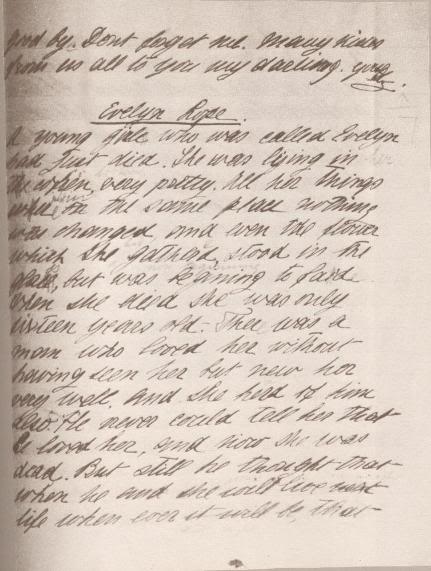 good by. Dont forget me. Many kisses
from us all to you my darling. your
Evelyn Hope.
A young girl who was called Evelyn
had just died. She was lying in
very pretty. All her things
were on the same place nothing
was changed and even the flower
which she gatherd, stood in the
glass, but was beginning to fade
When she died she was only
sixteen years old. Thee was a
man who loved her without
having seen her but new her
very well. and she herd of him
also. He never could tell her that
he loved her, and now she was
dead. But still he thought that
when he and she will live next
life when ever it will be, that